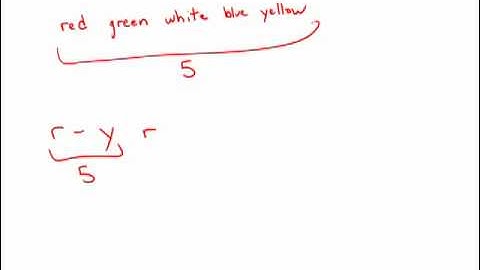 red green white blue yellow
5
r - y r
5